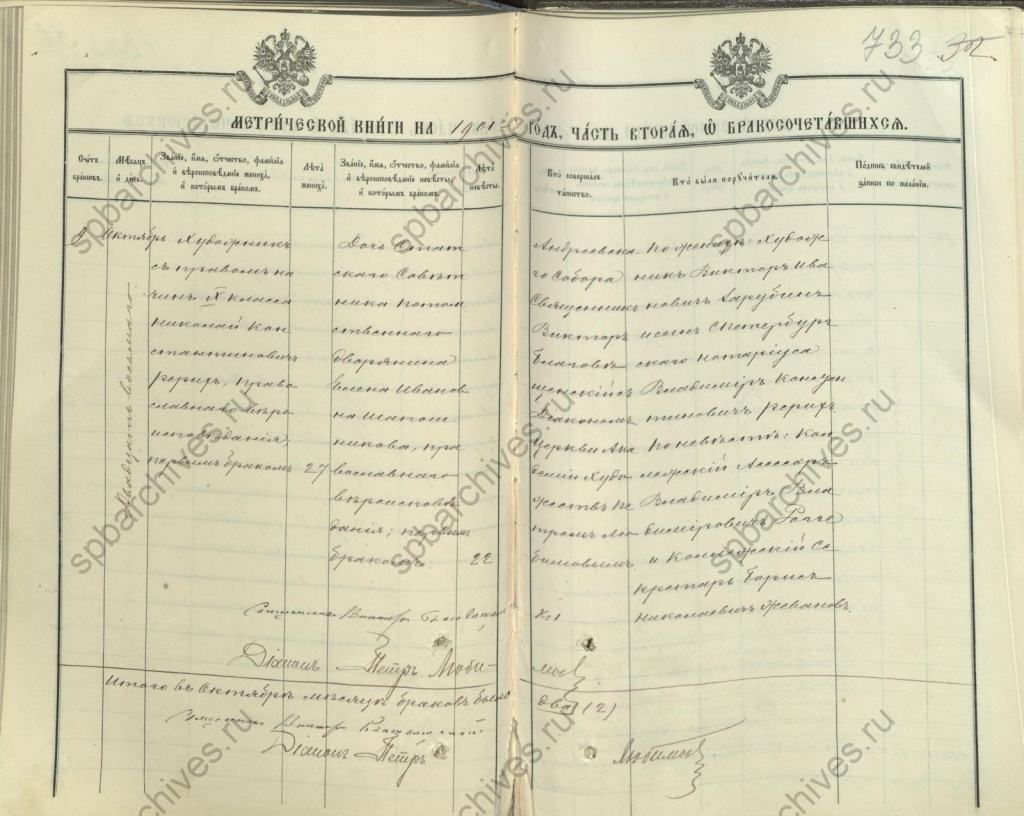 733 32
МЕТРИЧЕСКОЙ КНИГИ НА 1901 ГОДЪ, ЧАСТЬ ВТОРАЯ, Ѡ БРАКОСОЧЕТАВШИХСЯ.
Счетъ браковъ.
Мѣсяцъ и день.
Званіе, имя, отчество, фамилія и вѣроисповѣданіе жениха, и которымъ бракомъ.
Лѣта жениха.
Званіе, имя, отчество, фамилія и вѣроисповѣданіе невѣсты, и которымъ бракомъ.
Лѣта невѣсты.
Кто совершалъ таинство.
Кто были поручители.
Подпись свидѣтелей записи по желанію.
Октябрь
Двадцать восьмаго.
Художникъ
съ правомъ на
чинъ X класса
Николай Кон
стантиновичъ
Рерихъ, право
славнаго вѣро
исповѣданія,
первымъ бракомъ
27
Дочь Стат
скаго Совѣт
ника потом
ственнаго
дворянина
Елена Иванов
на Шапош
никова, пра
вославнаго
вѣроисповѣ
данія; первымъ
бракомъ
22
Андреевска
го Собора
Священникъ
Викторъ
Благовѣ
щенскій съ
Діакономъ
Церкви Ака
деміи Худо
жествъ Пе
тромъ Лю
бимовымъ
По женихѣ: Худож
никъ Викторъ Ива
новичъ Зарубинъ
и сынъ СПетербург
скаго нотаріуса
Владиміръ Констан
тиновичъ Рерихъ
По невѣстѣ: Кол
лежскій Ассесоръ
Владиміръ Вла
диміровичъ Гопге
и Коллежскій Се
кретарь Борисъ
Николаевичъ Жевановъ.
Священникъ Викторъ Благовѣщенскій
Діаконъ Петръ Любимовъ
Итого въ Октябрѣ мѣсяцѣ браковъ было два (2)
Священникъ Викторъ Благовѣщенскій
Діаконъ Петръ Любимовъ
spbarchives.ru
spbarchives.ru
spbarchives.ru
spbarchives.ru
spbarchives.ru
spbarchives.ru